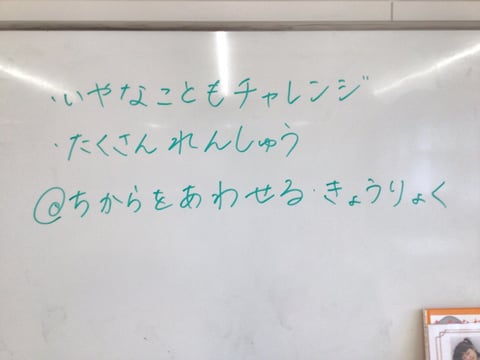 ・いやなこともチャレンジ
・たくさんれんしゅう
@ちからをあわせる・きょうりょく